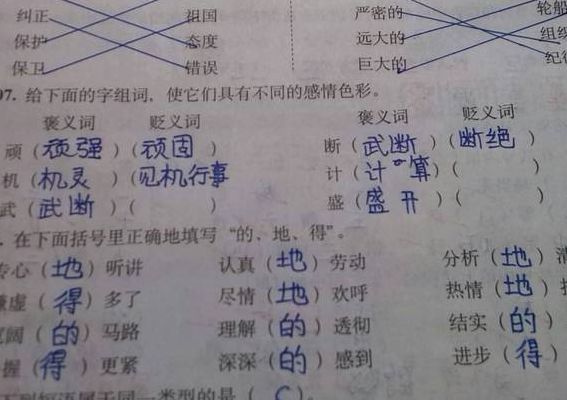 纠正 祖国 严密的 轮船
保护 态度 远大的 组织
保卫 错误 巨大的 纪
97. 给下面的字组词，使它们具有不同的感情色彩。
褒义词 贬义词 褒义词 贬义词
顽（顽强）（顽固） 断（武断）（断绝）
机（机灵）（见机行事 计（计算）（ ）
武（武断）（ ） 盛（盛开）（ ）
. 在下面括号里正确地填写“的、地、得”。
专心（地）听讲 认真（地）劳动 分析（地）清
谦虚（得）多了 尽情（地）欢呼 热情（地）
宽阔（的）马路 理解（的）透彻 结实（的）
握（得）更紧 深深（的）感到 进步（得）
下列短语属于同一类型的是（ C ）。